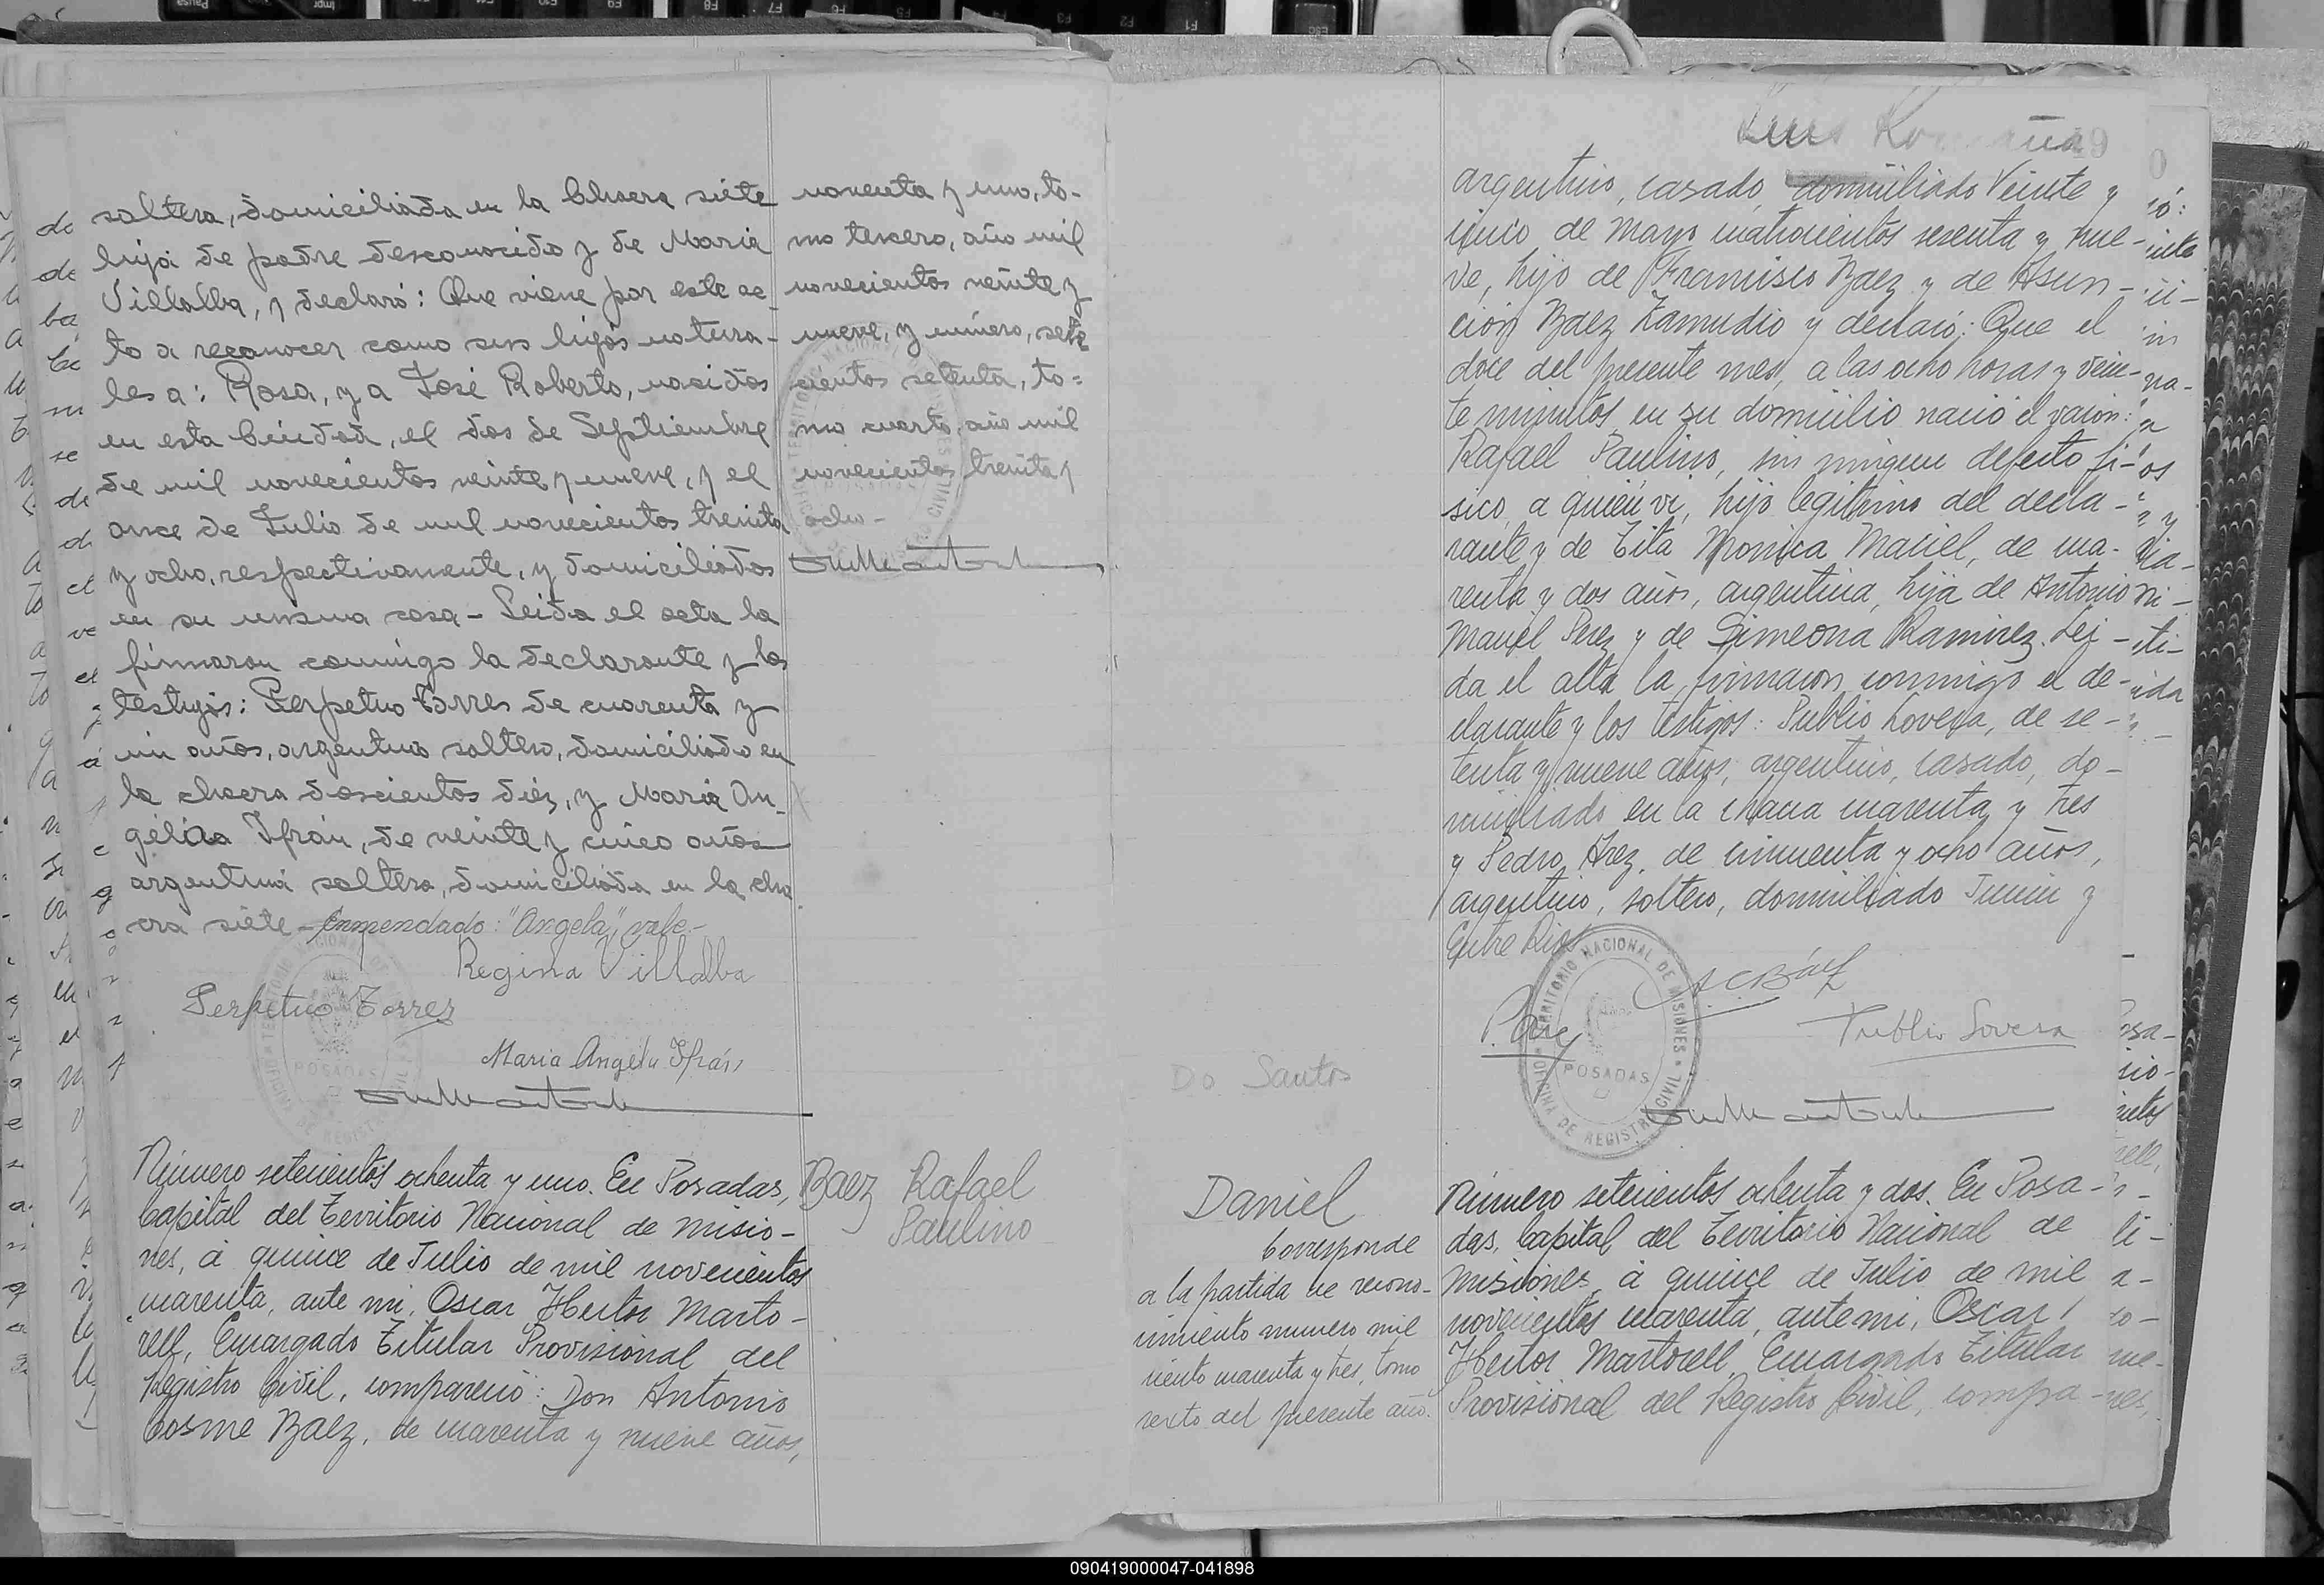 soltera, domiciliada en la Chacra siete
hija de padre desconocido y de Maria
Villalba, y declaró: Que viene por este ac-
to a reconocer como sus hijos natura-
les a: Rosa, y a José Roberto, nacidos
en esta Ciudad, el dos de Septiembre
de mil novecientos veinte y nueve, y el
once de Julio de mil novecientos treinta
y ocho, respectivamente, y domiciliados
en su misma casa - Leida el acta la
firmaron conmigo la declarante y los
testigos: Perpetuo Torres de cuarenta y
un años, argentino soltero, domiciliado en
la chacra doscientos diéz, y Maria An-
géla Ifrán, de veinte y cinco años
argentina soltera, domiciliada en la cha
cra siete - Enmendado: "Angela", vale.-
Regina Villalba
Perpetuo Torres
Maria Angela Ifrán
POSADAS
noventa y uno, to-
mo tercero, año mil
novecientos veinte y
nueve, y número, sete
cientos setenta, to=
mo cuarto, año mil
novecientos treinta y
ocho -
Número setecientos ochenta y uno. En Posadas,
Capital del Territorio Nacional de Misio-
nes, á quince de Julio de mil novecientos
cuarenta, ante mi, Oscar Hector Marto-
rell, Encargado Titular Provisional del
Registro Civil, compareció: Don Antonio
Cosme Baez, de cuarenta y nueve años,
Baez Rafael
Paulino
Luis
argentino, casado, domiciliado Veinte y
cinco de Mayo cuatrocientos sesenta y nue-
ve, hijo de Francisco Baez y de Asun-
ción Baez Zamudio y declaró: Que el
doce del presente mes, a las ocho horas y vein-
te minutos, en su domicilio nació el varon:
Rafael Paulino, sin ningun defecto fi-
sico, a quien vi, hijo legitimo del decla-
rante y de Tita Monica Maciel, de cua-
renta y dos años, argentina, hija de Antonio
Maciel Perez y de Simeona Ramirez. Lei-
da el acta la firmaron conmigo el de-
clarante y los testigos: Publio Lovera, de se-
tenta y nueve años, argentino, casado, do-
miciliado en la chacra cuarenta y tres
y Pedro Arez, de cincuenta y ocho años,
argentino, soltero, domiciliado Junin y
Entre Rios
A C Báez
Publio Lovera
TERRITORIO NACIONAL DE MISIONES
OFICINA DE REGISTRO CIVIL
POSADAS
Do Santos
Daniel
Corresponde
a la partida de recono-
cimiento numero mil
ciento cuarenta y tres, tomo
sexto del presente año.
Número setecientos ochenta y dos. En Posa-
das, Capital del Territorio Nacional de
Misiones, á quince de Julio de mil
novecientos cuarenta, ante mi, Oscar
Hector Martorell, Encargado Titular
Provisional del Registro Civil, compa-
090419000047-041898